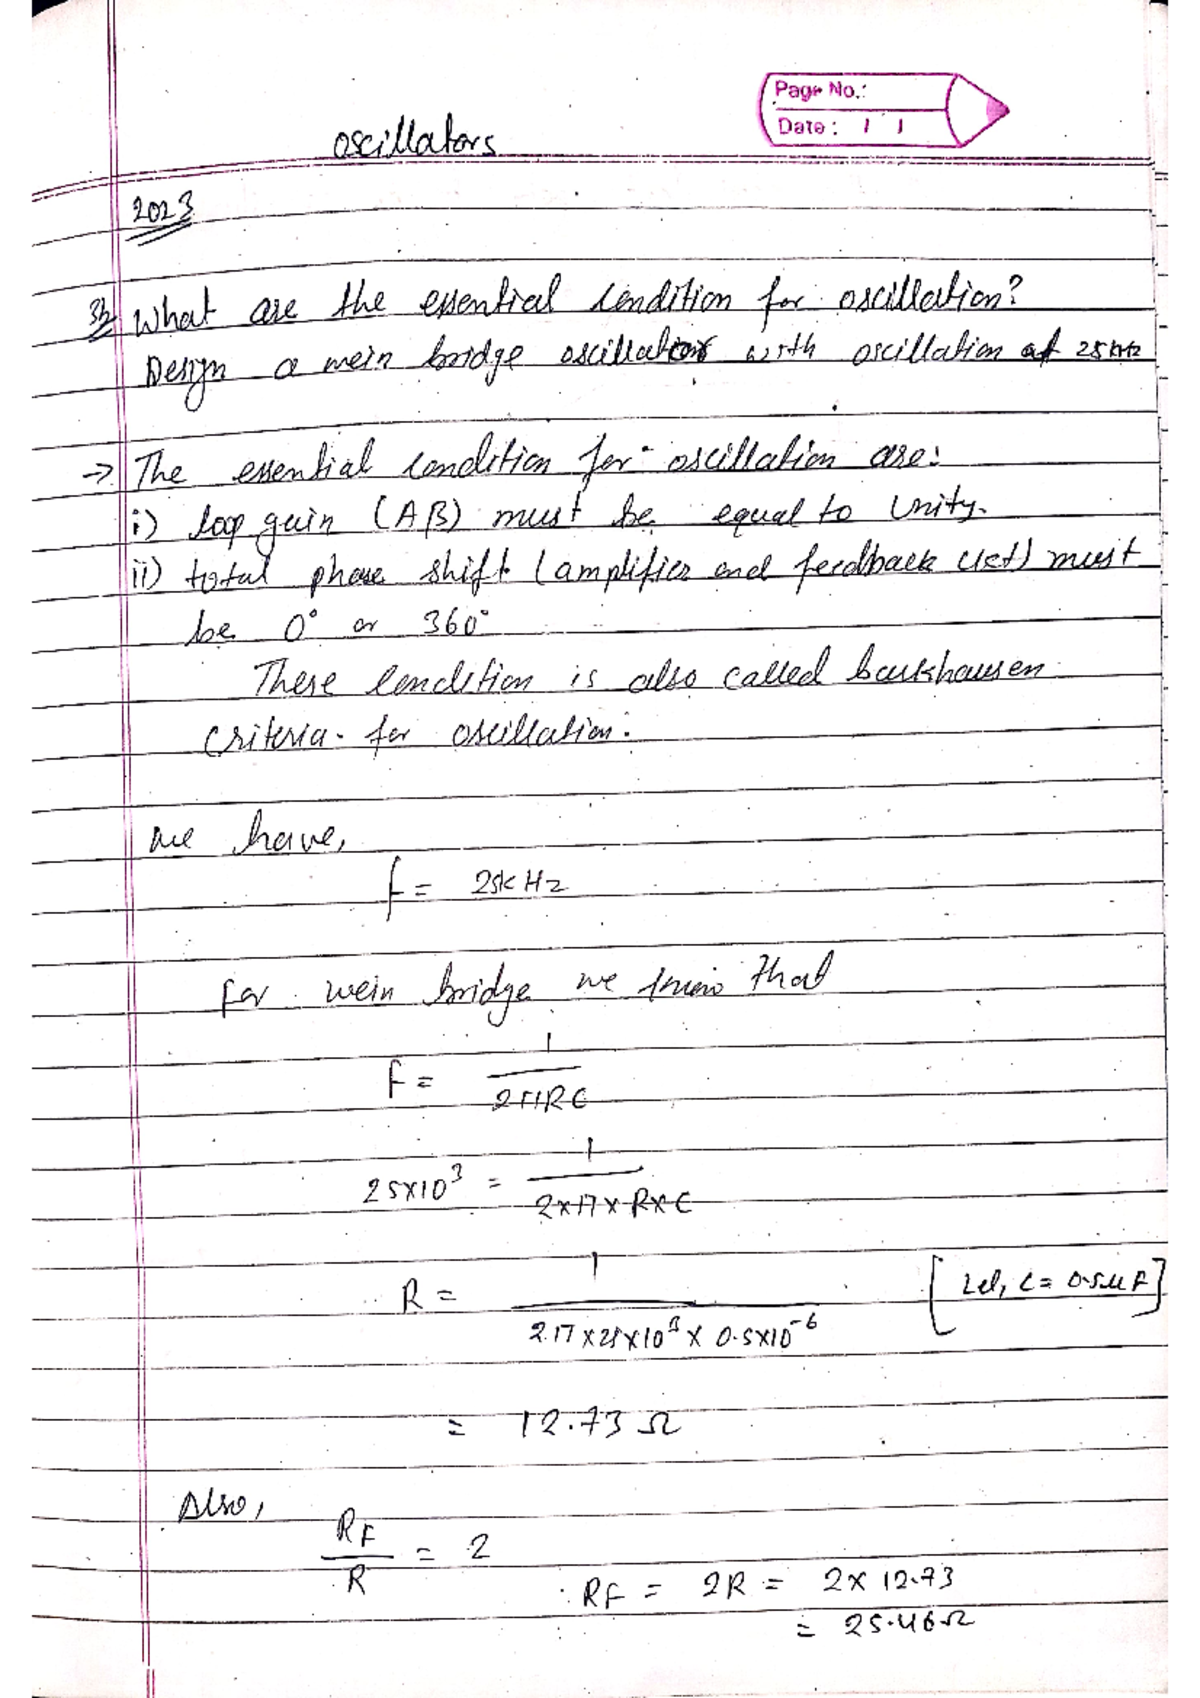 Page No.:
Date: / /
oscillators
2023
3b) What are the essential condition for oscillation?
Design a wein bridge oscillator with oscillation at 25kHz
→ The essential condition for oscillation are:
i) loop gain (Aβ) must be equal to Unity.
ii) total phase shift (amplifier and feedback ckt) must
be 0° or 360°
These condition is also called barkhausen
criteria for oscillation.
we have,
f = 25kHz
for wein bridge we know that
f = 1 / 2πRC
25×10³ = 1 / 2×π×R×C
R = 1 / 2π×25×10³×0.5×10⁻⁶ [Let, C = 0.5μF]
= 12.73Ω
Also,
RF / R = 2
∴ RF = 2R = 2×12.73
= 25.46Ω